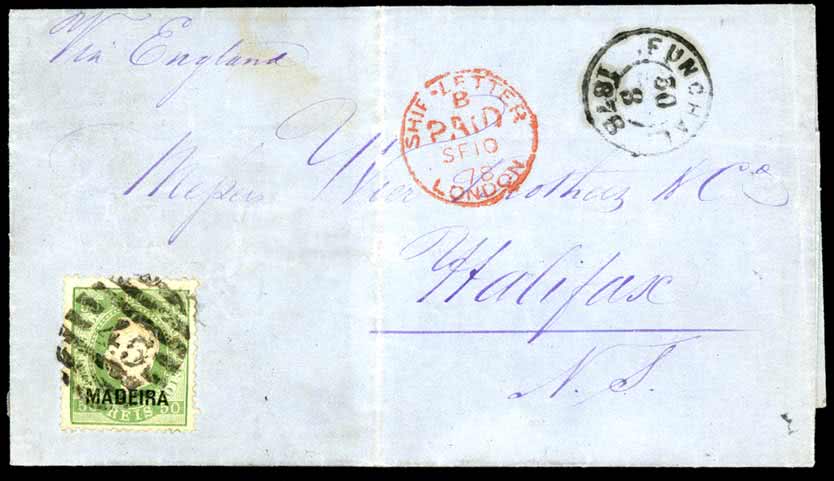 Via England
SHIP-LETTER
B
PAID
SP 10
78
LONDON
FUNCHAL
30
8
1878
Messrs Wier Brothers & Co
Halifax
N. S.
MADEIRA
50 REIS 50